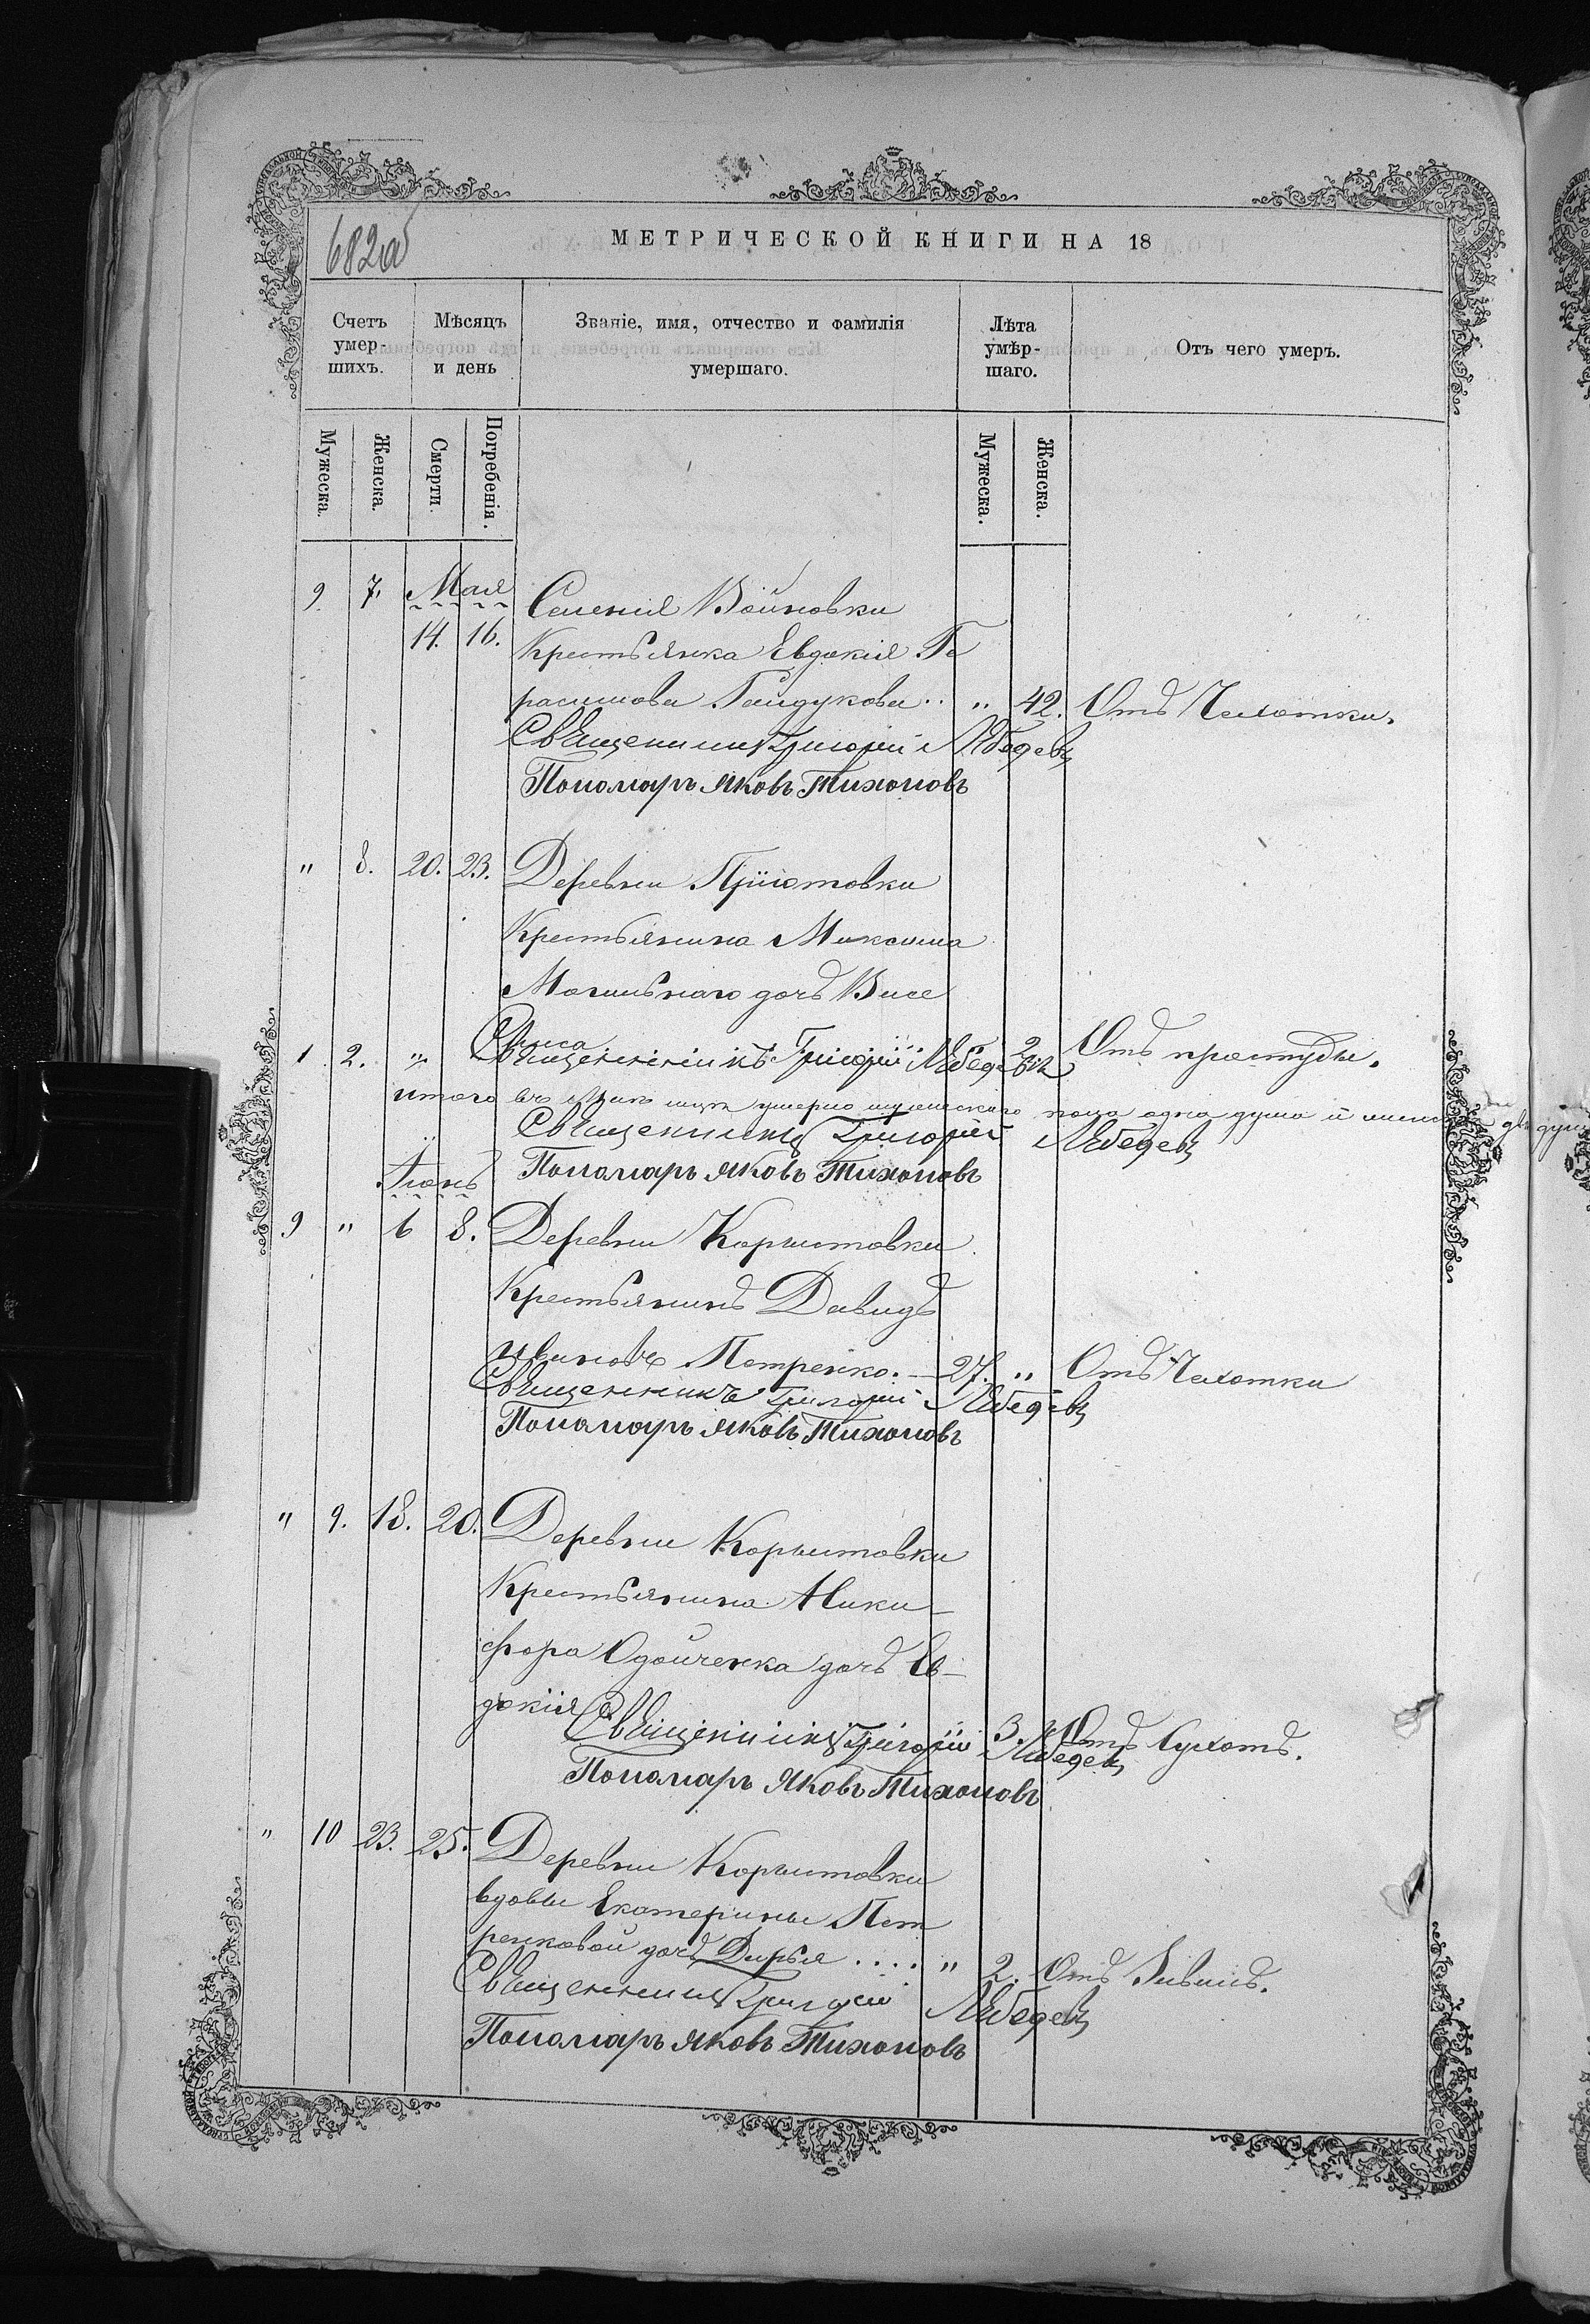 682об
МЕТРИЧЕСКОЙ КНИГИ НА 18
Счетъ умер-шихъ.
Мѣсяцъ и день
Званіе, имя, отчество и фамилія умершаго.
Лѣта умѣр-шаго.
Отъ чего умеръ.
Мужеска.
Женска.
Смерти.
Погребенія.
Мужеска.
Женска.
9. 7. Мая Селенія Войновки
14. 16. Крестьянка Евдокія Ге
расимова Гайдукова .. „ 42. Отъ Чахотки.
Священникъ Григорій Лебедевъ
Пономарь Яковъ Тихоновъ
„ 8. 20. 23. Деревни Пріютовки
Крестьянина Максима
Могильнаго дочь Васе
лиса 2. Отъ простуды.
1 2. „ Священникъ Григорій Лебедевъ
итого въ маѣ умерло мужескаго пола одна душа и женска двѣ души
Священникъ Григорій Лебедевъ
Пономарь Яковъ Тихоновъ
Іюнь
9 „ 6 8. Деревни Корыстовки
Крестьянинъ Давидъ
Ивановъ Петренко. — 27. „ Отъ Чахотки
Священникъ Григорій Лебедевъ
Пономарь Яковъ Тихоновъ
„ 9. 18. 20. Деревни Корыстовки
Крестьянина Ники-
фора дочь Ев-
докія 3. Отъ Сухотъ.
Священникъ Григорій Лебедевъ
Пономарь Яковъ Тихоновъ
„ 10 23. 25. Деревни Корыстовки
вдовы Екатерины Пет
ренковой дочь Дарья .... „ 2. Отъ
Священникъ Григорій Лебедевъ
Пономарь Яковъ Тихоновъ